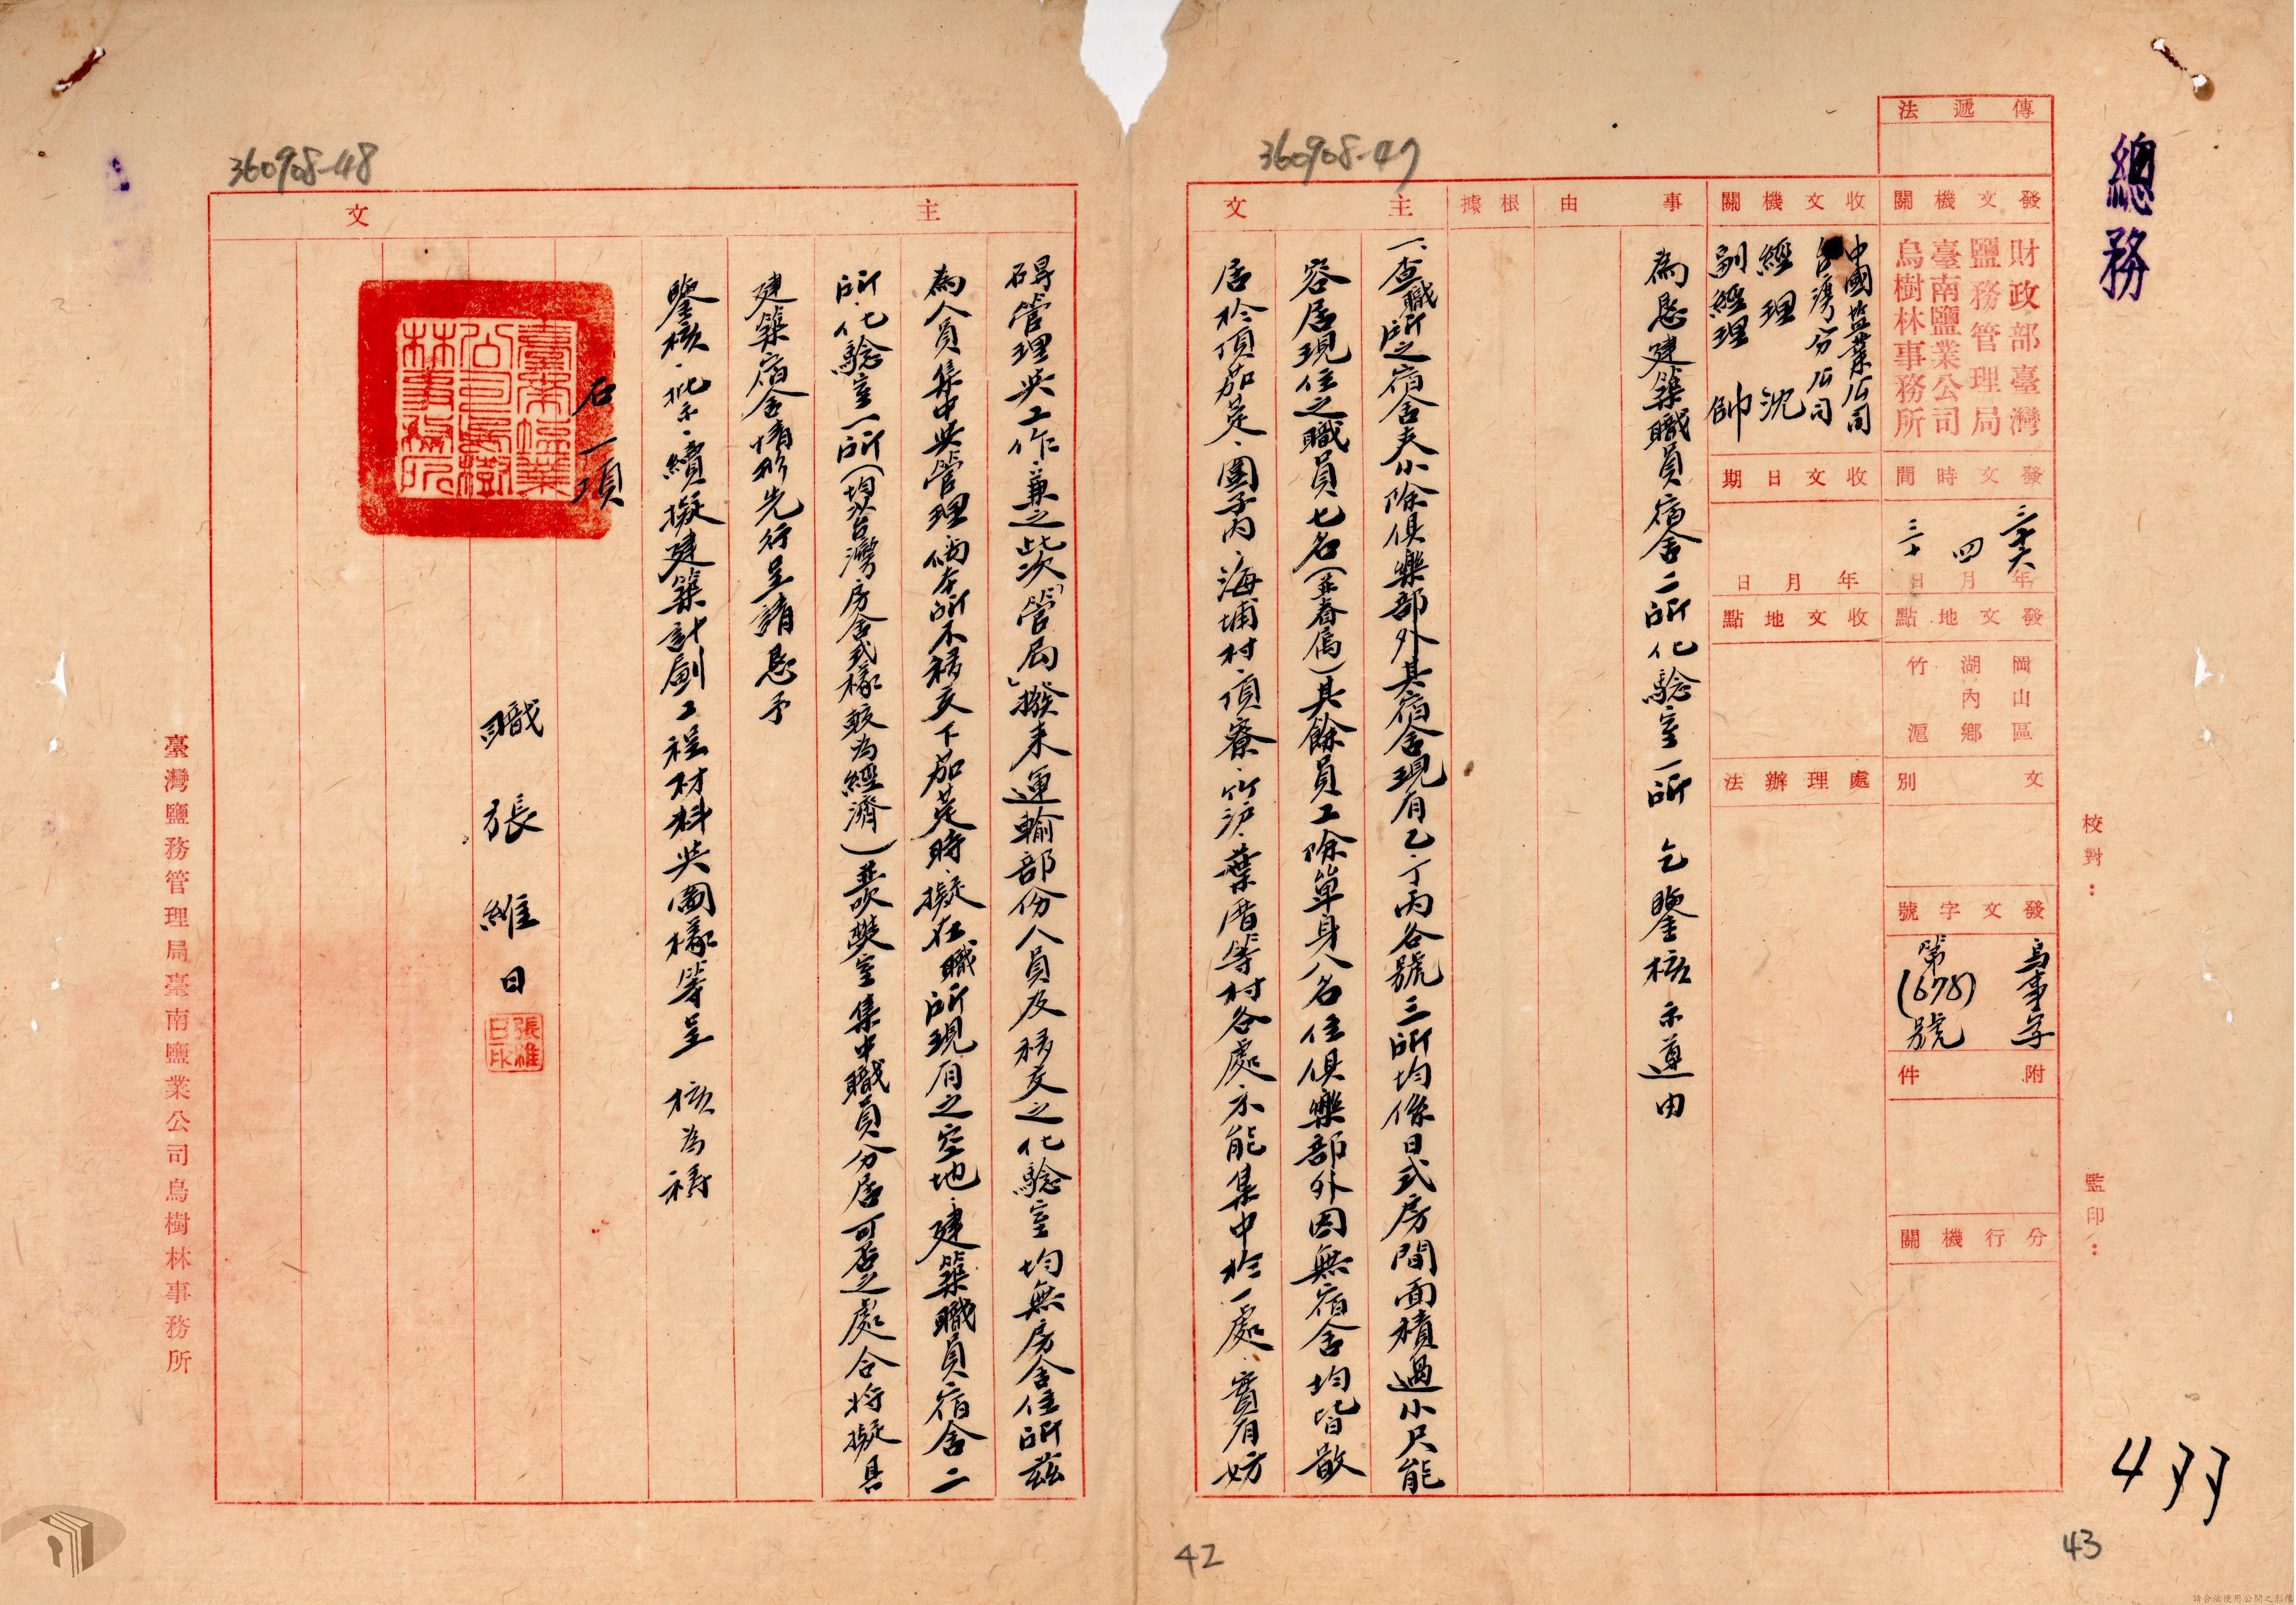 總務
傳遞法
發文機關
財政部臺灣
鹽務管理局
臺南鹽業公司
烏樹林事務所
發文時間
三十六年
四月
三十日
發文地點
岡山區
湖內鄉
竹滬
文別
發文字號
烏事字
第(678)號
附件
分行機關
收文機關
中國鹽業公司
台灣分公司
經理 沈
副經理 帥
收文日期
年月日
收文地點
處理辦法
事由
為懇建築職員宿舍二所化驗室一所 乞鑒核示遵由
根據
主文
一、查職所之宿舍大小除俱樂部外其宿舍現有乙、丁丙各號三所均係日式房間面積過小只能
容居現住之職員七名(並眷屬)其餘員工除單身人名住俱樂部外因無宿舍均皆散
居於頂茄萣、圍子內、海埔村、頂寮、竹沪、葉厝等村各處不能集中於一處、實有妨
校對：
監印：
433
43
42
360908-47
360908-48
主文
碍管理與工作、兼之此次「管局」撥來運輸部份人員及移交之化驗室均無房舍住所茲
為人員集中與管理倘本所不移交下茄萣時、擬在職所現有之空地、建築職員宿舍二
所、化驗室一所(均以台灣房舍式樣較為經濟)並以奘室集中職員分居可否之處合將擬具
建築宿舍情形先行呈請懇予
鑒核、批示、續擬建築計劃工程材料與圖樣等呈 核為禱
右一項
職 張維日
張維日印
臺南鹽業公司烏樹林事務所
臺灣鹽務管理局臺南鹽業公司烏樹林事務所
請合法使用公開之影像